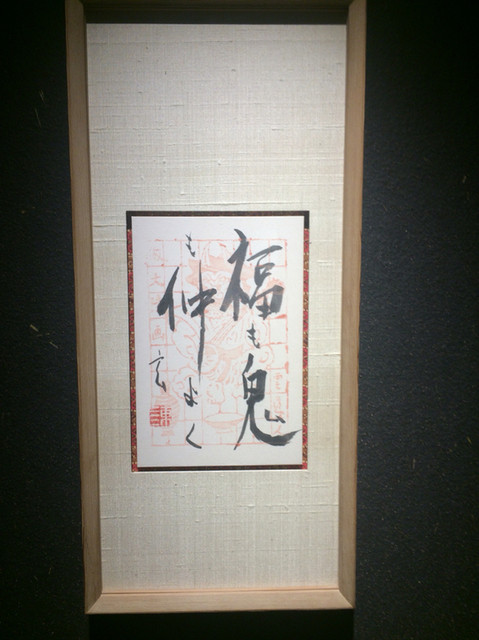 福も鬼
も仲よく
玄